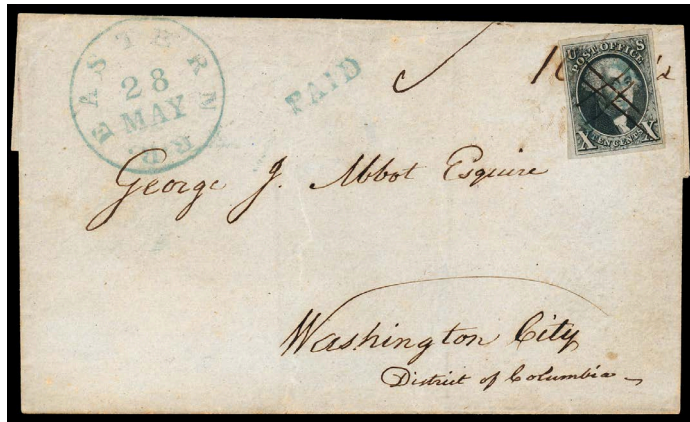 EASTERN R.R.
28
MAY
PAID
10
U S
POST OFFICE
X TEN CENTS X
George J. Abbot Esquire
Washington City
District of Columbia